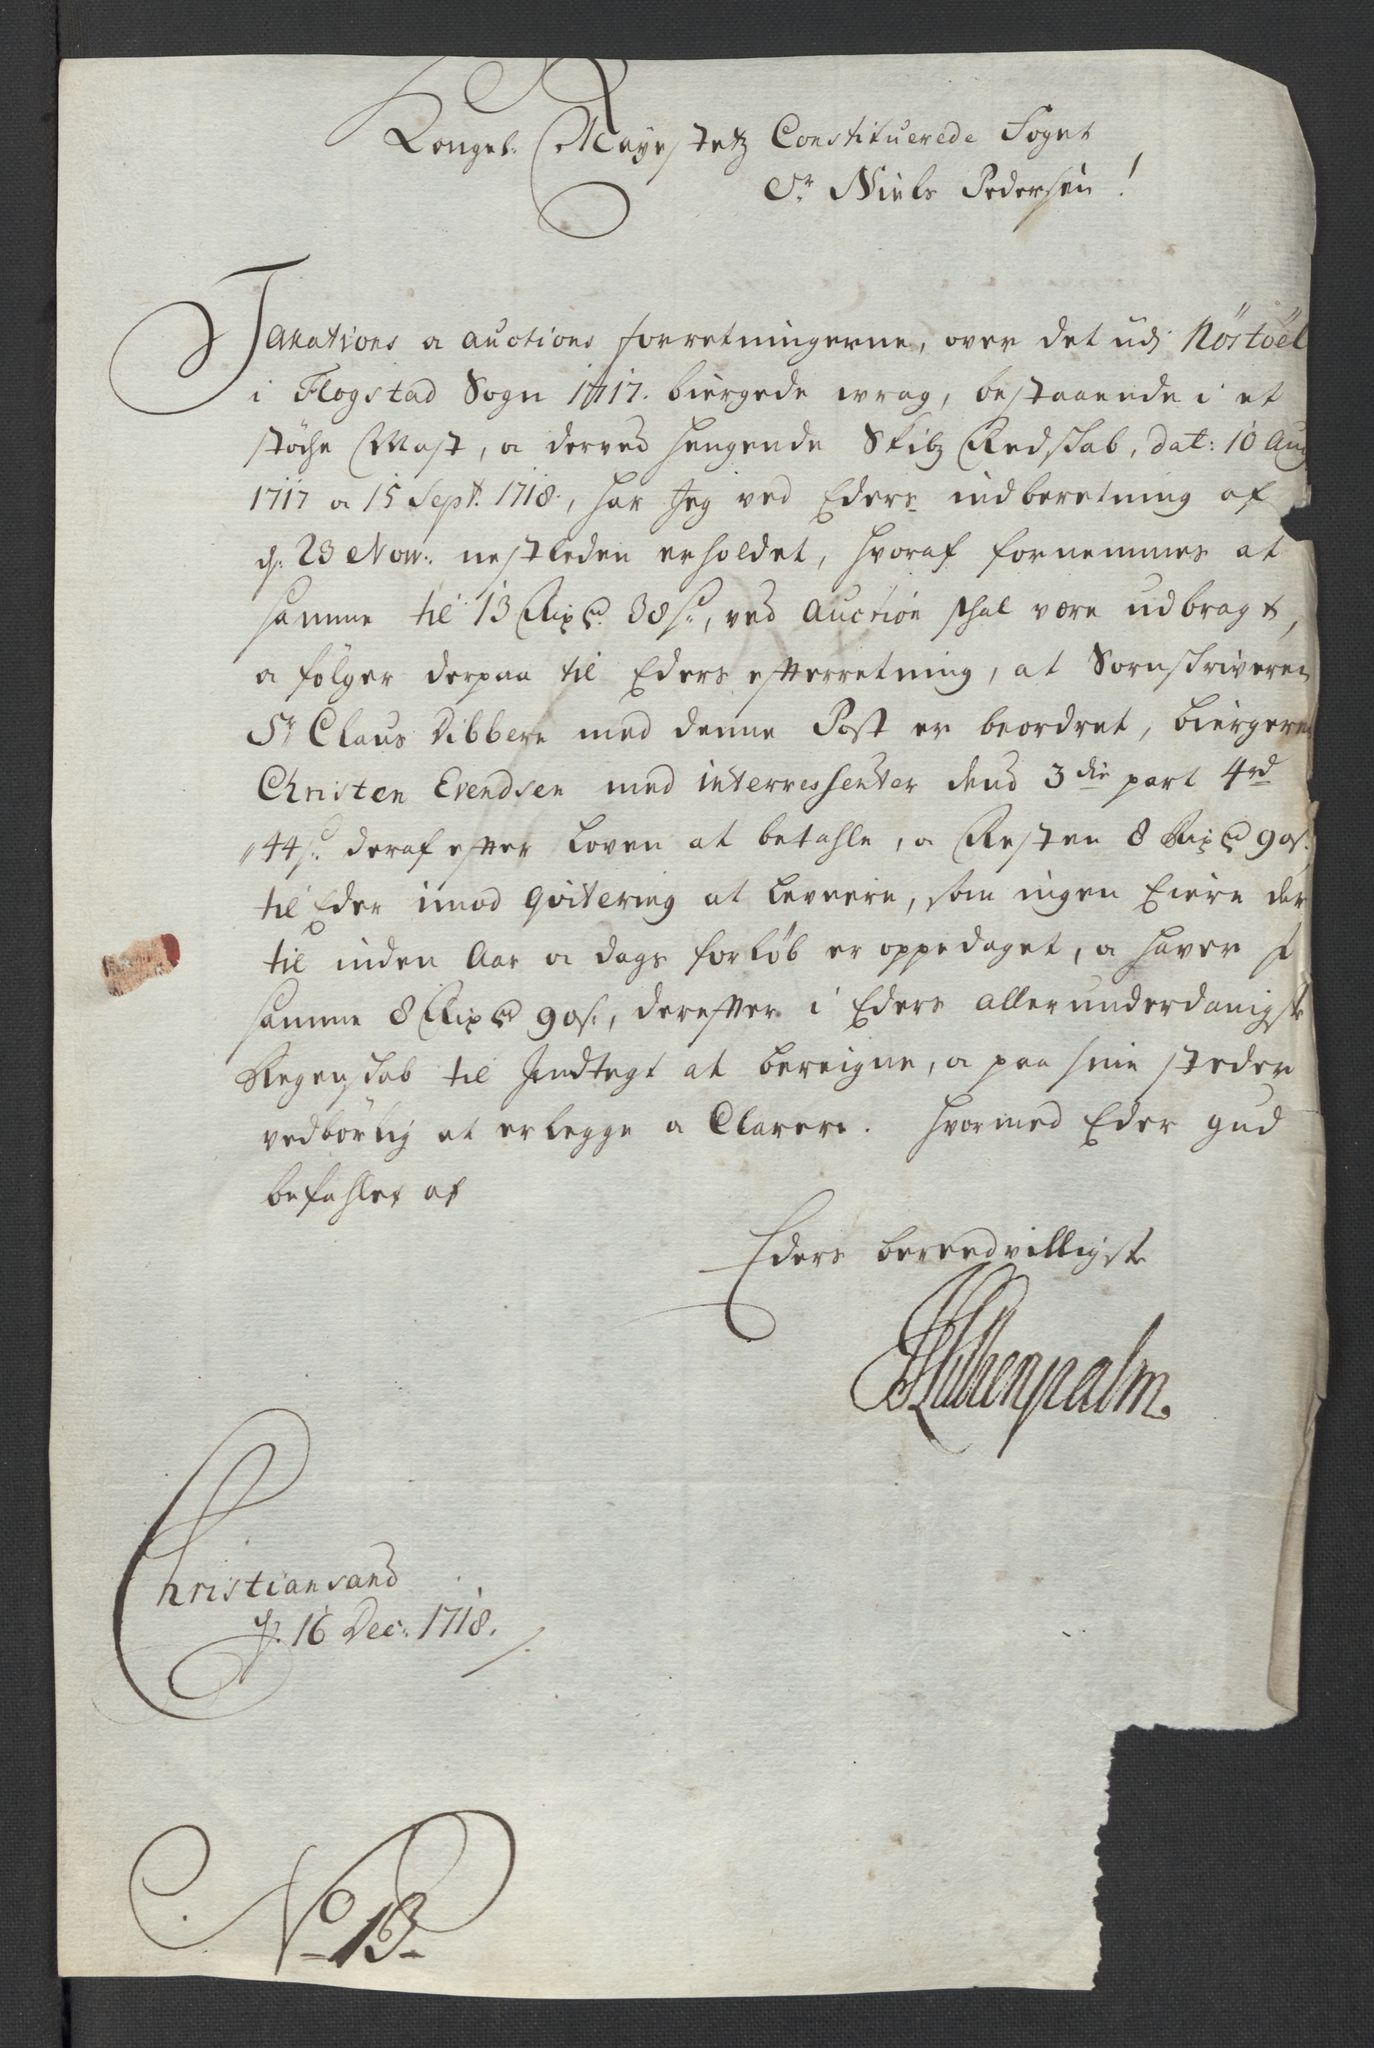 Kongel: Mayestetz Constituerede Foget
Sr Niels Pedersen!
Taxations a auctions forretningerne, over det udj Röstöel
i Flogstad Sogn 1717. biergede wrag, bestaaende i et
stöche Mast, a derved hengende Skibz Redskab, dat: 10 Aug
1717 a 15 Sept. 1718, har Jeg ved Eders indberetning af
d: 23 Nov: nestleden erholdet, hvoraf fornemmes at
samme til 13 Rixd. 38 s:, ved Auction schal være udbragt,
a følger derpaa til Eders efterretning, at Sornskriveren
Sr Claus Dibbern med denne Post er beordret, biergeren
Christen Evendsen med interressenter dend 3die part 4 rd
44 s: deraf efter Loven at betahle, a Resten 8 Rixd 90 s:
til Eder imod qvitering at Levere, som ingen Eiere der
til inden Aar a dags forløb er oppedaget, a haver I
samme 8 Rixd 90 s:, derefter i Eders allerunderdanigste
Regenskab til Indtegt at bereigne, a paa sine steder
vedbørlig at erlegge a Clarere. Hvormed Eder Gud
befahlet af
Eders beredvilligste
Christiansand
d. 16 Dec: 1718.
No 13